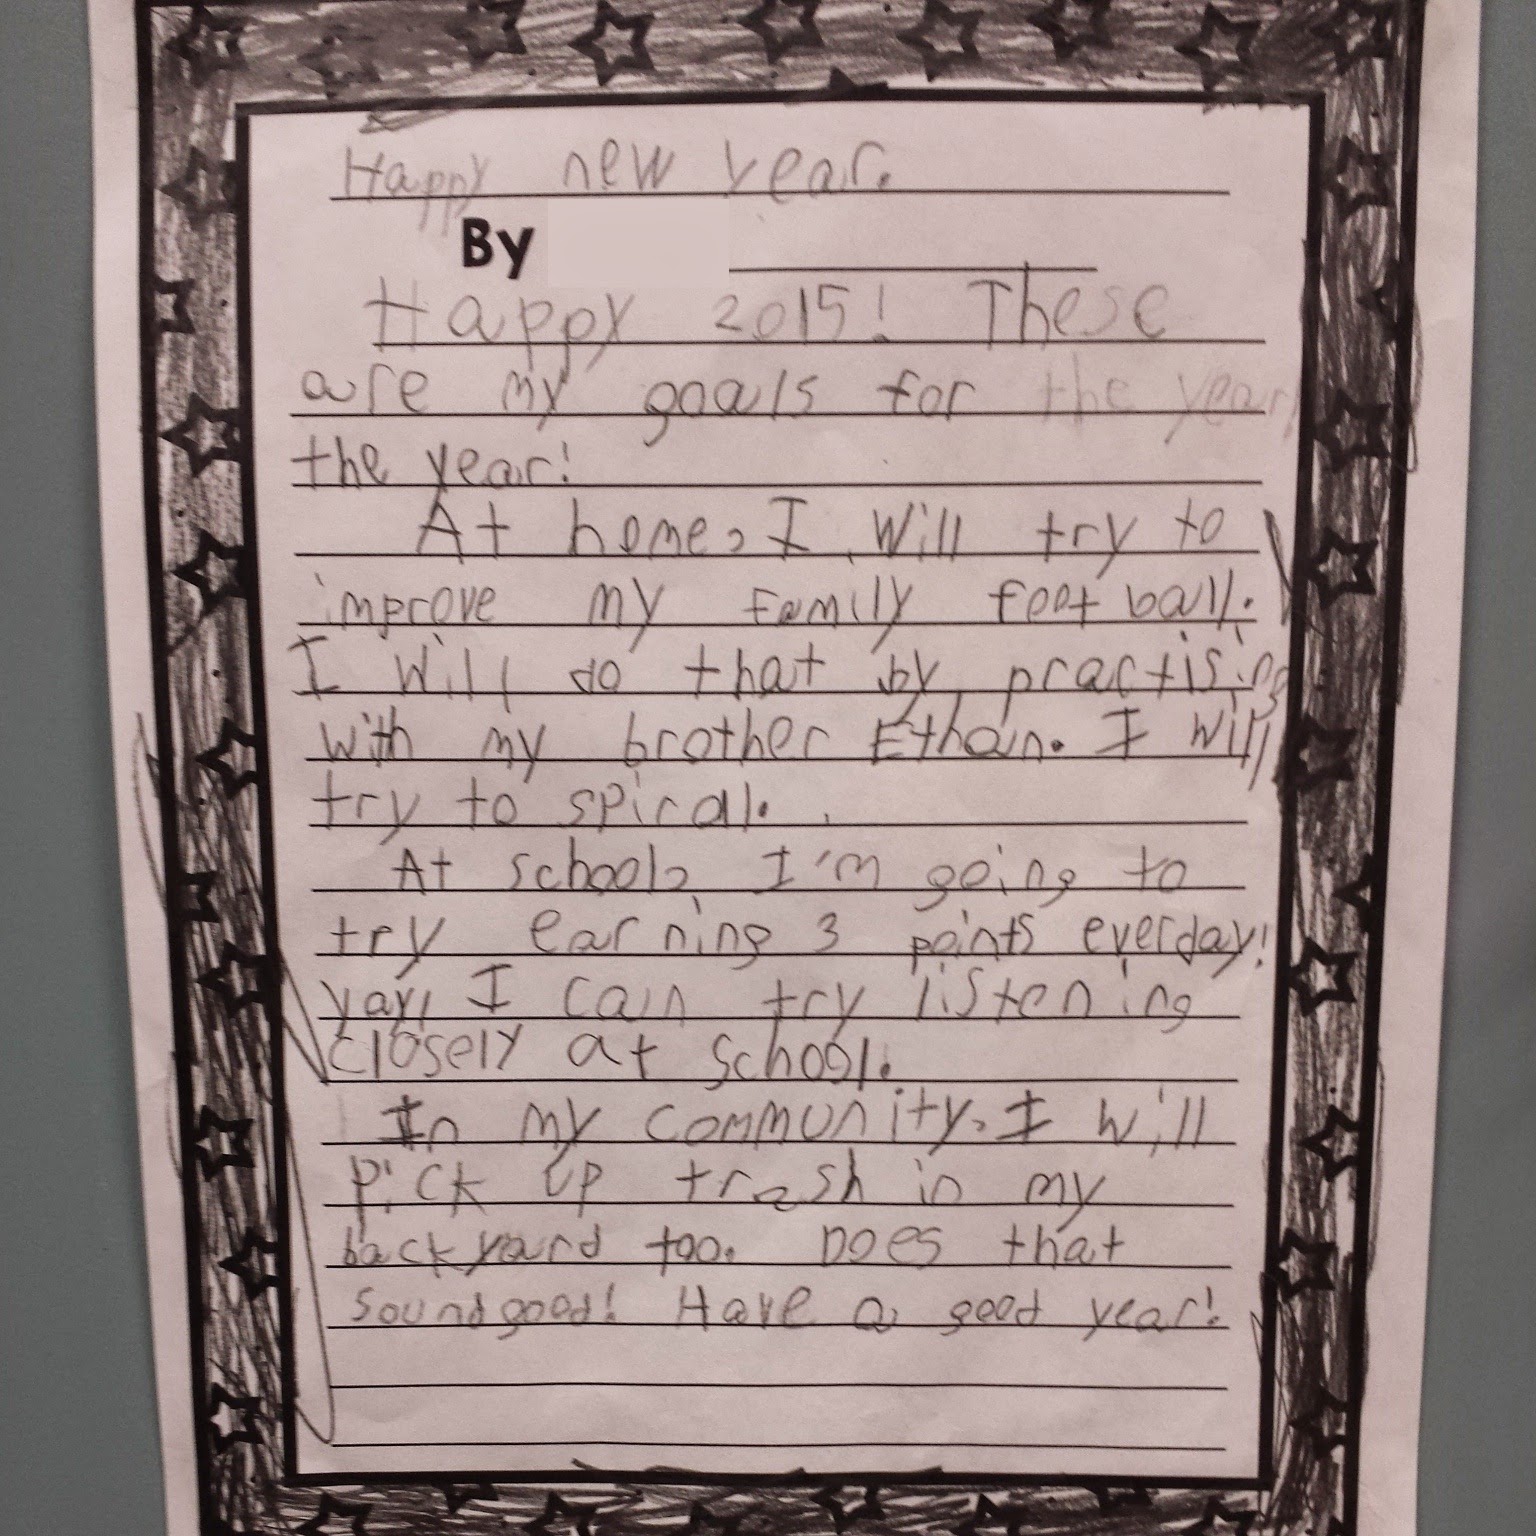 Happy new year.
By
Happy 2015! These
are my goals for the year
the year!
At home, I will try to
improve my family football.
I will do that by practising
with my brother Ethan. I will
try to spiral.
At school, I'm going to
try earning 3 points everday!
yay, I can try listening
closely at school.
In my community, I will
pick up trash in my
backyard too. Does that
sound good! Have a good year!